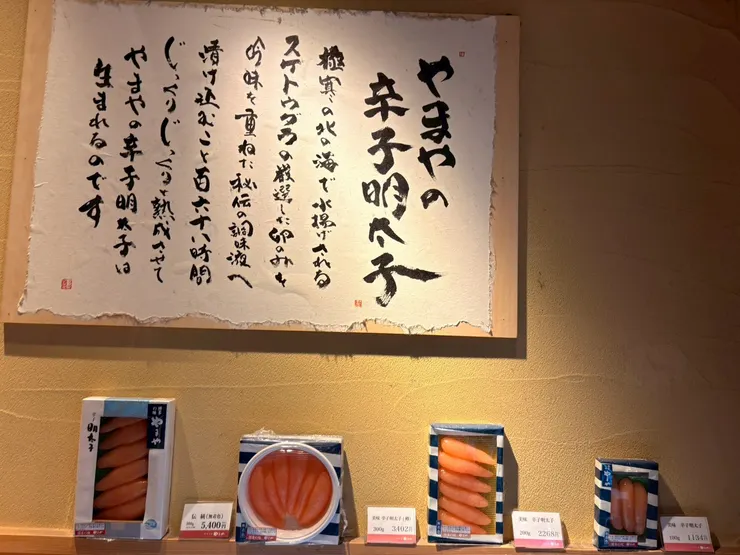 やまやの
辛子明太子
極寒の北の海で水揚げされる
スケトウダラの厳選した卵のみを
吟味を重ねた秘伝の調味液へ
漬け込むこと百六十八時間
じっくりじっくりと熟成させて
やまやの辛子明太子は
生まれるのです
明太子
やまや
5,400円
美味 辛子明太子
300g 3402円
美味 辛子明太子
200g 2268円
美味 辛子明太子
100g 1134円